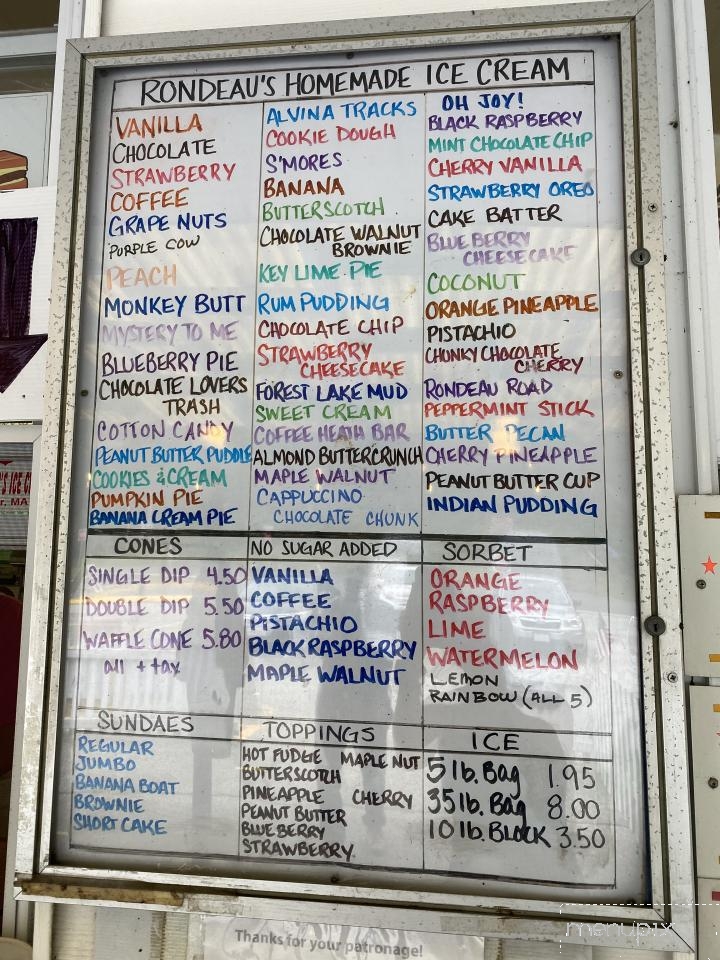 RONDEAU'S HOMEMADE ICE CREAM
VANILLA
CHOCOLATE
STRAWBERRY
COFFEE
GRAPE NUTS
PURPLE COW
PEACH
MONKEY BUTT
MYSTERY TO ME
BLUEBERRY PIE
CHOCOLATE LOVERS
TRASH
COTTON CANDY
PEANUT BUTTER PUDDLE
COOKIES & CREAM
PUMPKIN PIE
BANANA CREAM PIE
ALVINA TRACKS
COOKIE DOUGH
S'MORES
BANANA
BUTTERSCOTCH
CHOCOLATE WALNUT
BROWNIE
KEY LIME PIE
RUM PUDDING
CHOCOLATE CHIP
STRAWBERRY
CHEESECAKE
FOREST LAKE MUD
SWEET CREAM
COFFEE HEATH BAR
ALMOND BUTTERCRUNCH
MAPLE WALNUT
CAPPUCCINO
CHOCOLATE CHUNK
OH JOY!
BLACK RASPBERRY
MINT CHOCOLATE CHIP
CHERRY VANILLA
STRAWBERRY OREO
CAKE BATTER
BLUEBERRY
CHEESECAKE
COCONUT
ORANGE PINEAPPLE
PISTACHIO
CHUNKY CHOCOLATE
CHERRY
RONDEAU ROAD
PEPPERMINT STICK
BUTTER PECAN
CHERRY PINEAPPLE
PEANUT BUTTER CUP
INDIAN PUDDING
CONES
SINGLE DIP 4.50
DOUBLE DIP 5.50
WAFFLE CONE 5.80
all + tax
NO SUGAR ADDED
VANILLA
COFFEE
PISTACHIO
BLACK RASPBERRY
MAPLE WALNUT
SORBET
ORANGE
RASPBERRY
LIME
WATERMELON
LEMON
RAINBOW (ALL 5)
SUNDAES
REGULAR
JUMBO
BANANA BOAT
BROWNIE
SHORT CAKE
TOPPINGS
HOT FUDGE MAPLE NUT
BUTTERSCOTCH
PINEAPPLE CHERRY
PEANUT BUTTER
BLUEBERRY
STRAWBERRY
ICE
5 lb. Bag 1.95
35 lb. Bag 8.00
10 lb. BLOCK 3.50
Thanks for your patronage!
menupix